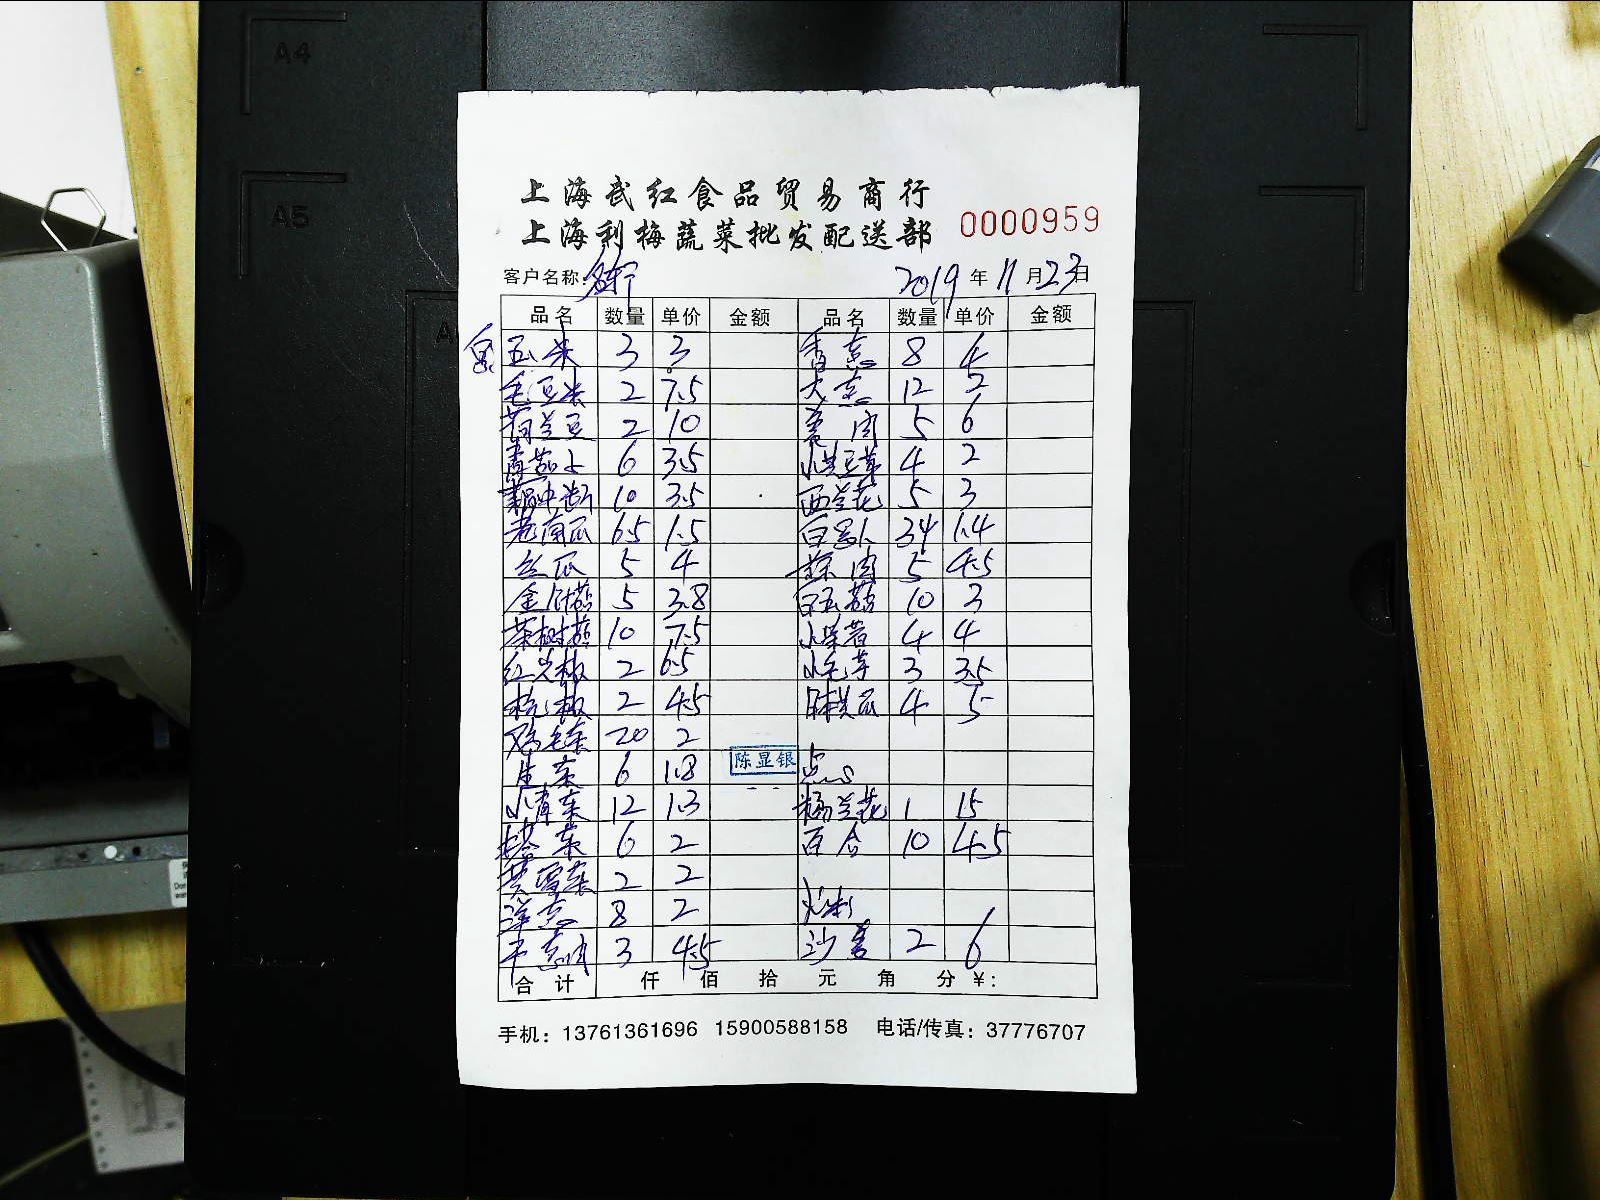 A4
A5
上海武红食品贸易商行
上海利梅蔬菜批发配送部
0000959
客户名称:
2019年11月23日
品名 数量 单价 金额 品名 数量 单价 金额
玉米 3 3 香菜 8 4
毛豆米 2 7.5 大葱 12 2
荷兰豆 2 10 姜肉 5 6
青茄子 6 3.5 小黄豆芽 4 2
藕中断 10 3.5 西兰花 5 3
老南瓜 6.5 1.5 白萝卜 34 1.4
丝瓜 5 4 蒜肉 5 4.5
金针菇 5 3.8 白玉菇 10 3
茶树菇 10 7.5 小紫薯 4 4
红尖椒 2 6.5 小毛芋 3 3.5
杭椒 2 4.5 日本黄瓜 4 5
鸡毛菜 20 2
生菜 6 1.8 陈显银 点心
小青菜 12 1.3 杨兰花 1 15
塔菜 6 2 百合 10 4.5
贡雪菜 2 2
洋葱 8 2 火制
干葱肉 3 4.5 沙姜 2 6
合计 仟 佰 拾 元 角 分 ¥:
手机: 13761361696 15900588158 电话/传真: 37776707